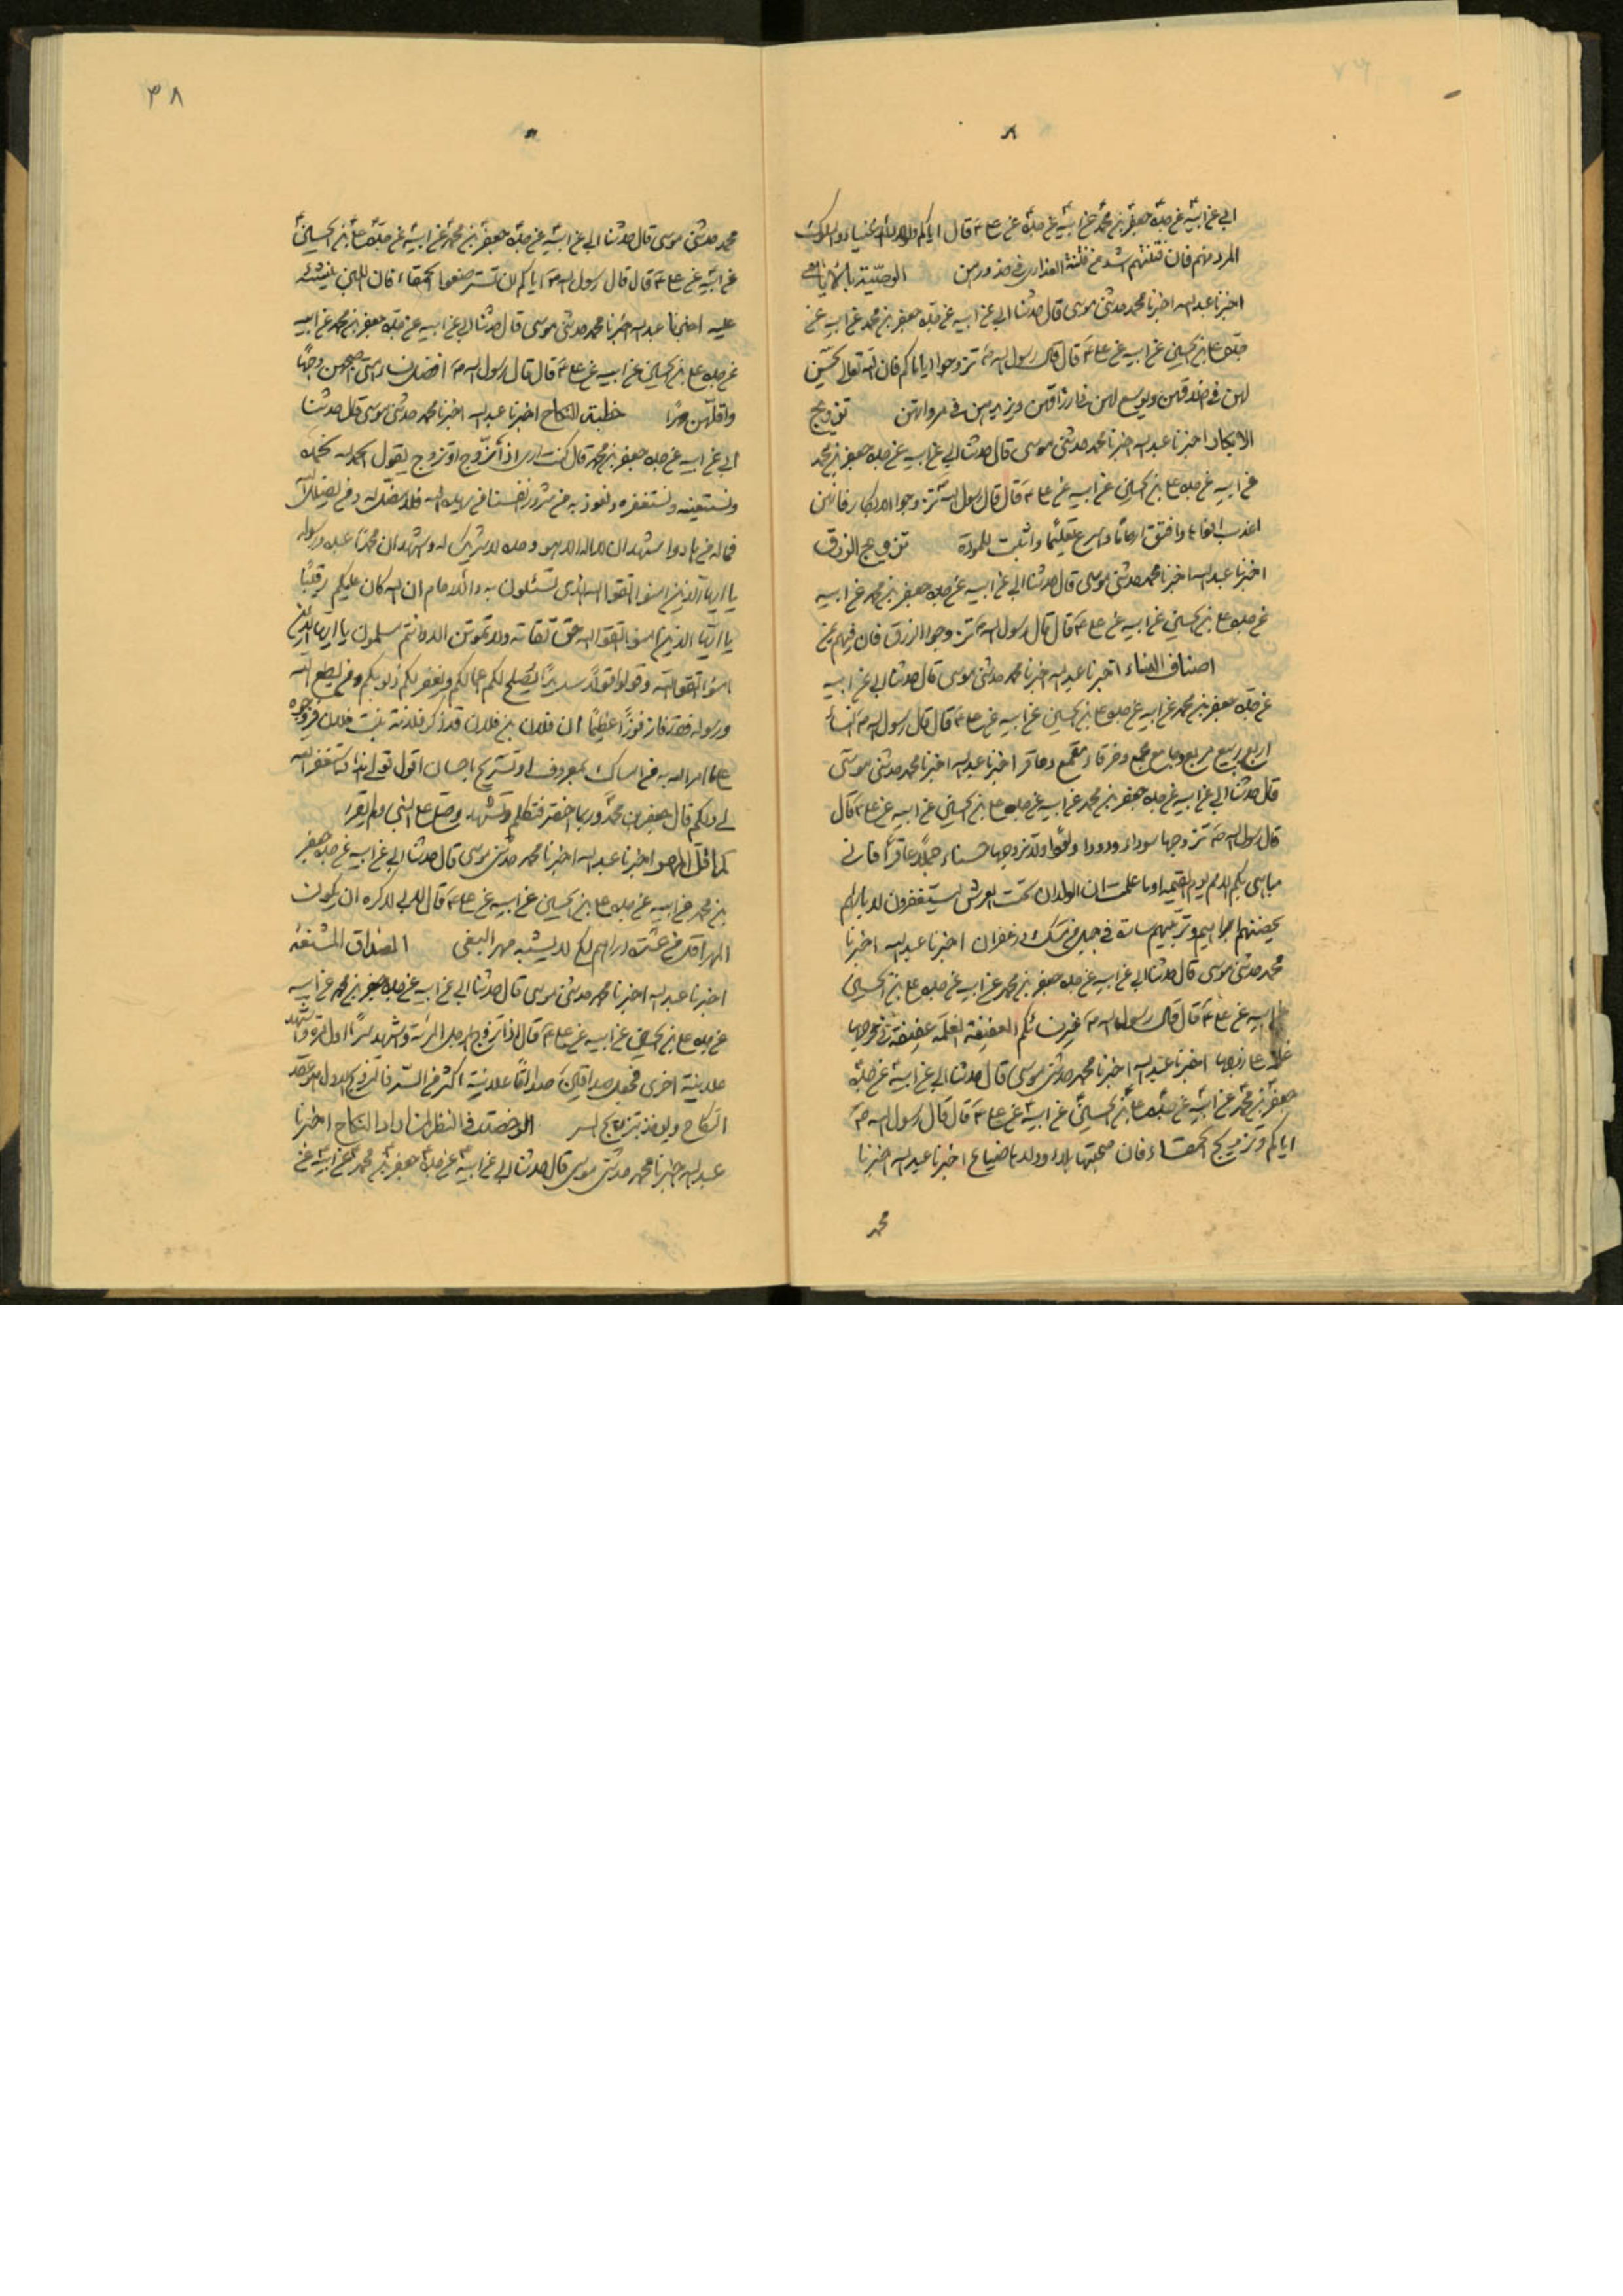 ابي عن ابيه عن جده جعفر بن محمد عن ابيه عن جده عن علي ع قال اياكم واولاد الاغنياء والملوك
المرد منهم فان فتنتهم اشد من فتنة العذارى في خدورهن الوصية بالايامى
اخبرنا عبد الله اخبرنا محمد حدثنى موسى قال حدثنا ابي عن ابيه عن جده جعفر بن محمد عن ابيه عن
جده علي بن الحسين عن ابيه عن علي ع قال قال رسول الله ص تزوجوا اياماكم فان الله تعالى يحسن
لهن في اخلاقهن ويوسع لهن في ارزاقهن ويزيدهن في مرواتهن تزويج
الابكار اخبرنا عبد الله اخبرنا محمد حدثنى موسى قال حدثنا ابي عن ابيه عن جده جعفر بن محمد
عن ابيه عن جده علي بن الحسين عن ابيه عن علي ع قال قال رسول الله ص تزوجوا الابكار فانهن
اعذب افواها وافتق ارحاما واسرع تعليما واثبت للمودة تزويج الزرق
اخبرنا عبد الله اخبرنا محمد حدثنى موسى قال حدثنا ابي عن ابيه عن جده جعفر بن محمد عن ابيه
عن جده علي بن الحسين عن ابيه عن علي ع قال قال رسول الله ص تزوجوا الزرق فان فيهم يمن
اصناف النساء اخبرنا عبد الله اخبرنا محمد حدثنى موسى قال حدثنا ابي عن ابيه
عن جده جعفر بن محمد عن ابيه عن جده علي بن الحسين عن ابيه عن علي ع قال قال رسول الله ص النساء
اربع ربيع مربع وجامع مجمع وخرقاء مقمع وعاقر اخبرنا عبد الله اخبرنا محمد حدثنى موسى
قال حدثنا ابي عن ابيه عن جده جعفر بن محمد عن ابيه عن جده علي بن الحسين عن ابيه عن علي ع قال
قال رسول الله ص تزوجها سوداء ودودا ولودا ولا تزوجها حسناء جملا عاقرا فاني
مباهى بكم الامم يوم القيمه اوما علمت ان الولدان تحت العرش يستغفرون لابائهم
يحضنهم ابراهيم وتربيهم سارة في جبل من مسك وزعفران اخبرنا عبد الله اخبرنا
محمد حدثنى موسى قال حدثنا ابي عن ابيه عن جده جعفر بن محمد عن ابيه عن جده علي بن الحسين
عن ابيه عن علي ع قال قال رسول الله ص خير نسائكم العفيفة الغلمة عفيفة في فرجها
غلمة على زوجها اخبرنا عبد الله اخبرنا محمد حدثنى موسى قال حدثنا ابي عن ابيه عن جده
جعفر بن محمد عن ابيه عن جده علي بن الحسين عن ابيه عن علي ع قال قال رسول الله ص
اياكم وتزويج الحمقاء فان صحبتها بلاء وولدها ضياع اخبرنا عبد الله اخبرنا
محمد
٣٨
محمد حدثنى موسى قال حدثنا ابي عن ابيه عن جده جعفر بن محمد عن ابيه عن جده علي بن الحسين
عن ابيه عن علي ع قال قال رسول الله ص اياكم ان تسترضعوا الحمقاء فان اللبن ينشئه
عليه اخبرنا عبد الله اخبرنا محمد حدثنى موسى قال حدثنا ابي عن ابيه عن جده جعفر بن محمد عن ابيه
عن جده علي بن الحسين عن ابيه عن علي ع قال قال رسول الله ص افضل نساء امتى اصبحهن وجها
واقلهن مهرا خطبة النكاح اخبرنا عبد الله اخبرنا محمد حدثنى موسى قال حدثنا
ابي عن ابيه عن جده جعفر بن محمد قال كنت اذا تزوج او تزوج يقول الحمد لله نحمده
ونستعينه ونستغفره ونعوذ به من شرور انفسنا من يهده الله فلا مضل له ومن يضلل الله
فما له من هاد واشهد ان لا اله الا هو وحده لا شريك له واشهد ان محمدا عبده ورسوله
يا ايها الذين امنوا اتقوا الله الذي تسئلون به والارحام ان الله كان عليكم رقيبا
يا ايها الذين امنوا اتقوا الله حق تقاته ولا تموتن الا وانتم مسلمون يا ايها الذين
امنوا اتقوا الله وقولوا قولا سديدا يصلح لكم اعمالكم ويغفر لكم ذنوبكم ومن يطع الله
ورسوله فقد فاز فوزا عظيما ان فلان بن فلان قد ذكر فلانة بنت فلان فزوجوه
على ما امر الله به من امساك بمعروف او تسريح باحسان اقول قولي هذا واستغفر الله
لي ولكم قال جعفر بن محمد وربما اختصر فتكلم وتشهد وصلى على النبي ولم يقرء
كما قل المهور اخبرنا عبد الله اخبرنا محمد حدثنى موسى قال حدثنا ابي عن ابيه عن جده جعفر
بن محمد عن ابيه عن جده علي بن الحسين عن ابيه عن علي ع قال انى لاكره ان يكون
المهر اقل من عشرة دراهم لكى لا يشبه مهر البغى الصداق المشنعه
اخبرنا عبد الله اخبرنا محمد حدثنى موسى قال حدثنا ابي عن ابيه عن جده جعفر بن محمد عن ابيه
عن جده علي بن الحسين عن ابيه عن علي ع قال اذا تزوج الرجل المرئة واشهد سرا اول مرة واشهد
علانية اخرى فجعل صداقين صداقا علانية اكثر من السر فالتزويج الاول هو عقد
النكاح ويؤخذ بتزويج السر الرخصة في النظر لمن اراد النكاح اخبرنا
عبد الله اخبرنا محمد حدثنى موسى قال حدثنا ابي عن ابيه عن جده جعفر بن محمد عن ابيه عن